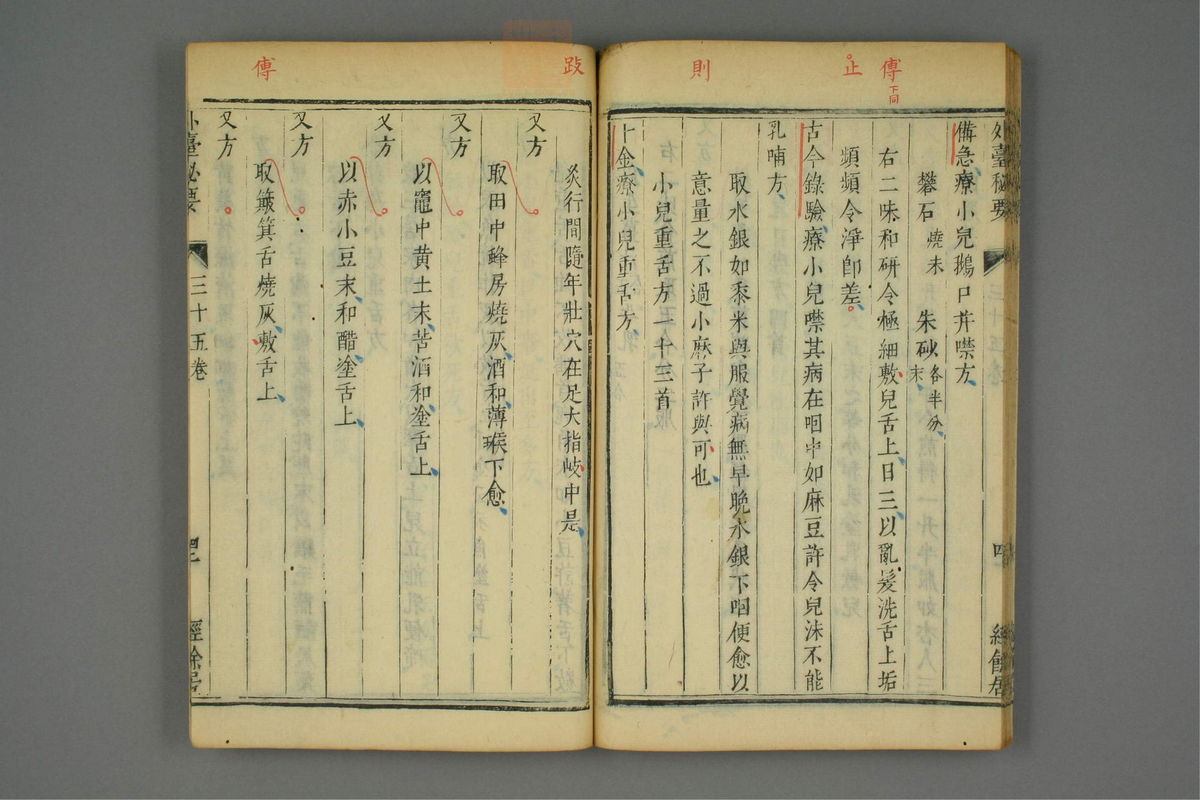 傅
下同
止
則
外臺秘要
備急療小兒鵝口并噤方
礬石燒末 朱砂各半分末
右二味和研令極細敷兒舌上日三以亂髮洗舌上垢
頻頻令淨即差
古今錄驗療小兒噤其病在咽中如麻豆許令兒沫不能
乳哺方
取水銀如黍米與服覺病無早晚水銀下咽便愈以
意量之不過小麻子許與可也
小兒重舌方一十三首
千金療小兒重舌方
跂
傅
灸行間隨年壯穴在足大指岐中是
又方
取田中蜂房燒灰酒和薄喉下愈
又方
以竈中黃土末苦酒和塗舌上
又方
以赤小豆末和醋塗舌上
又方
取簸箕舌燒灰敷舌上
又方
外臺秘要 三十五卷 經餘居